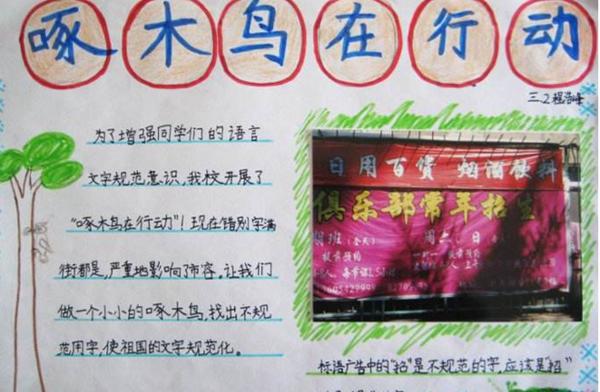 啄木鸟在行动
三.2程浩峰
为了增强同学们的语言
文字规范意识,我校开展了
“啄木鸟在行动”!现在错别字满
街都是,严重地影响了市容。让我们
做一个小小的啄木鸟,找出不规
范用字,使祖国的文字规范化。
日用百货 烟酒饮料
俱乐部常年招生
周六、日
标语广告中的“招”是不规范的字,应该是“招”